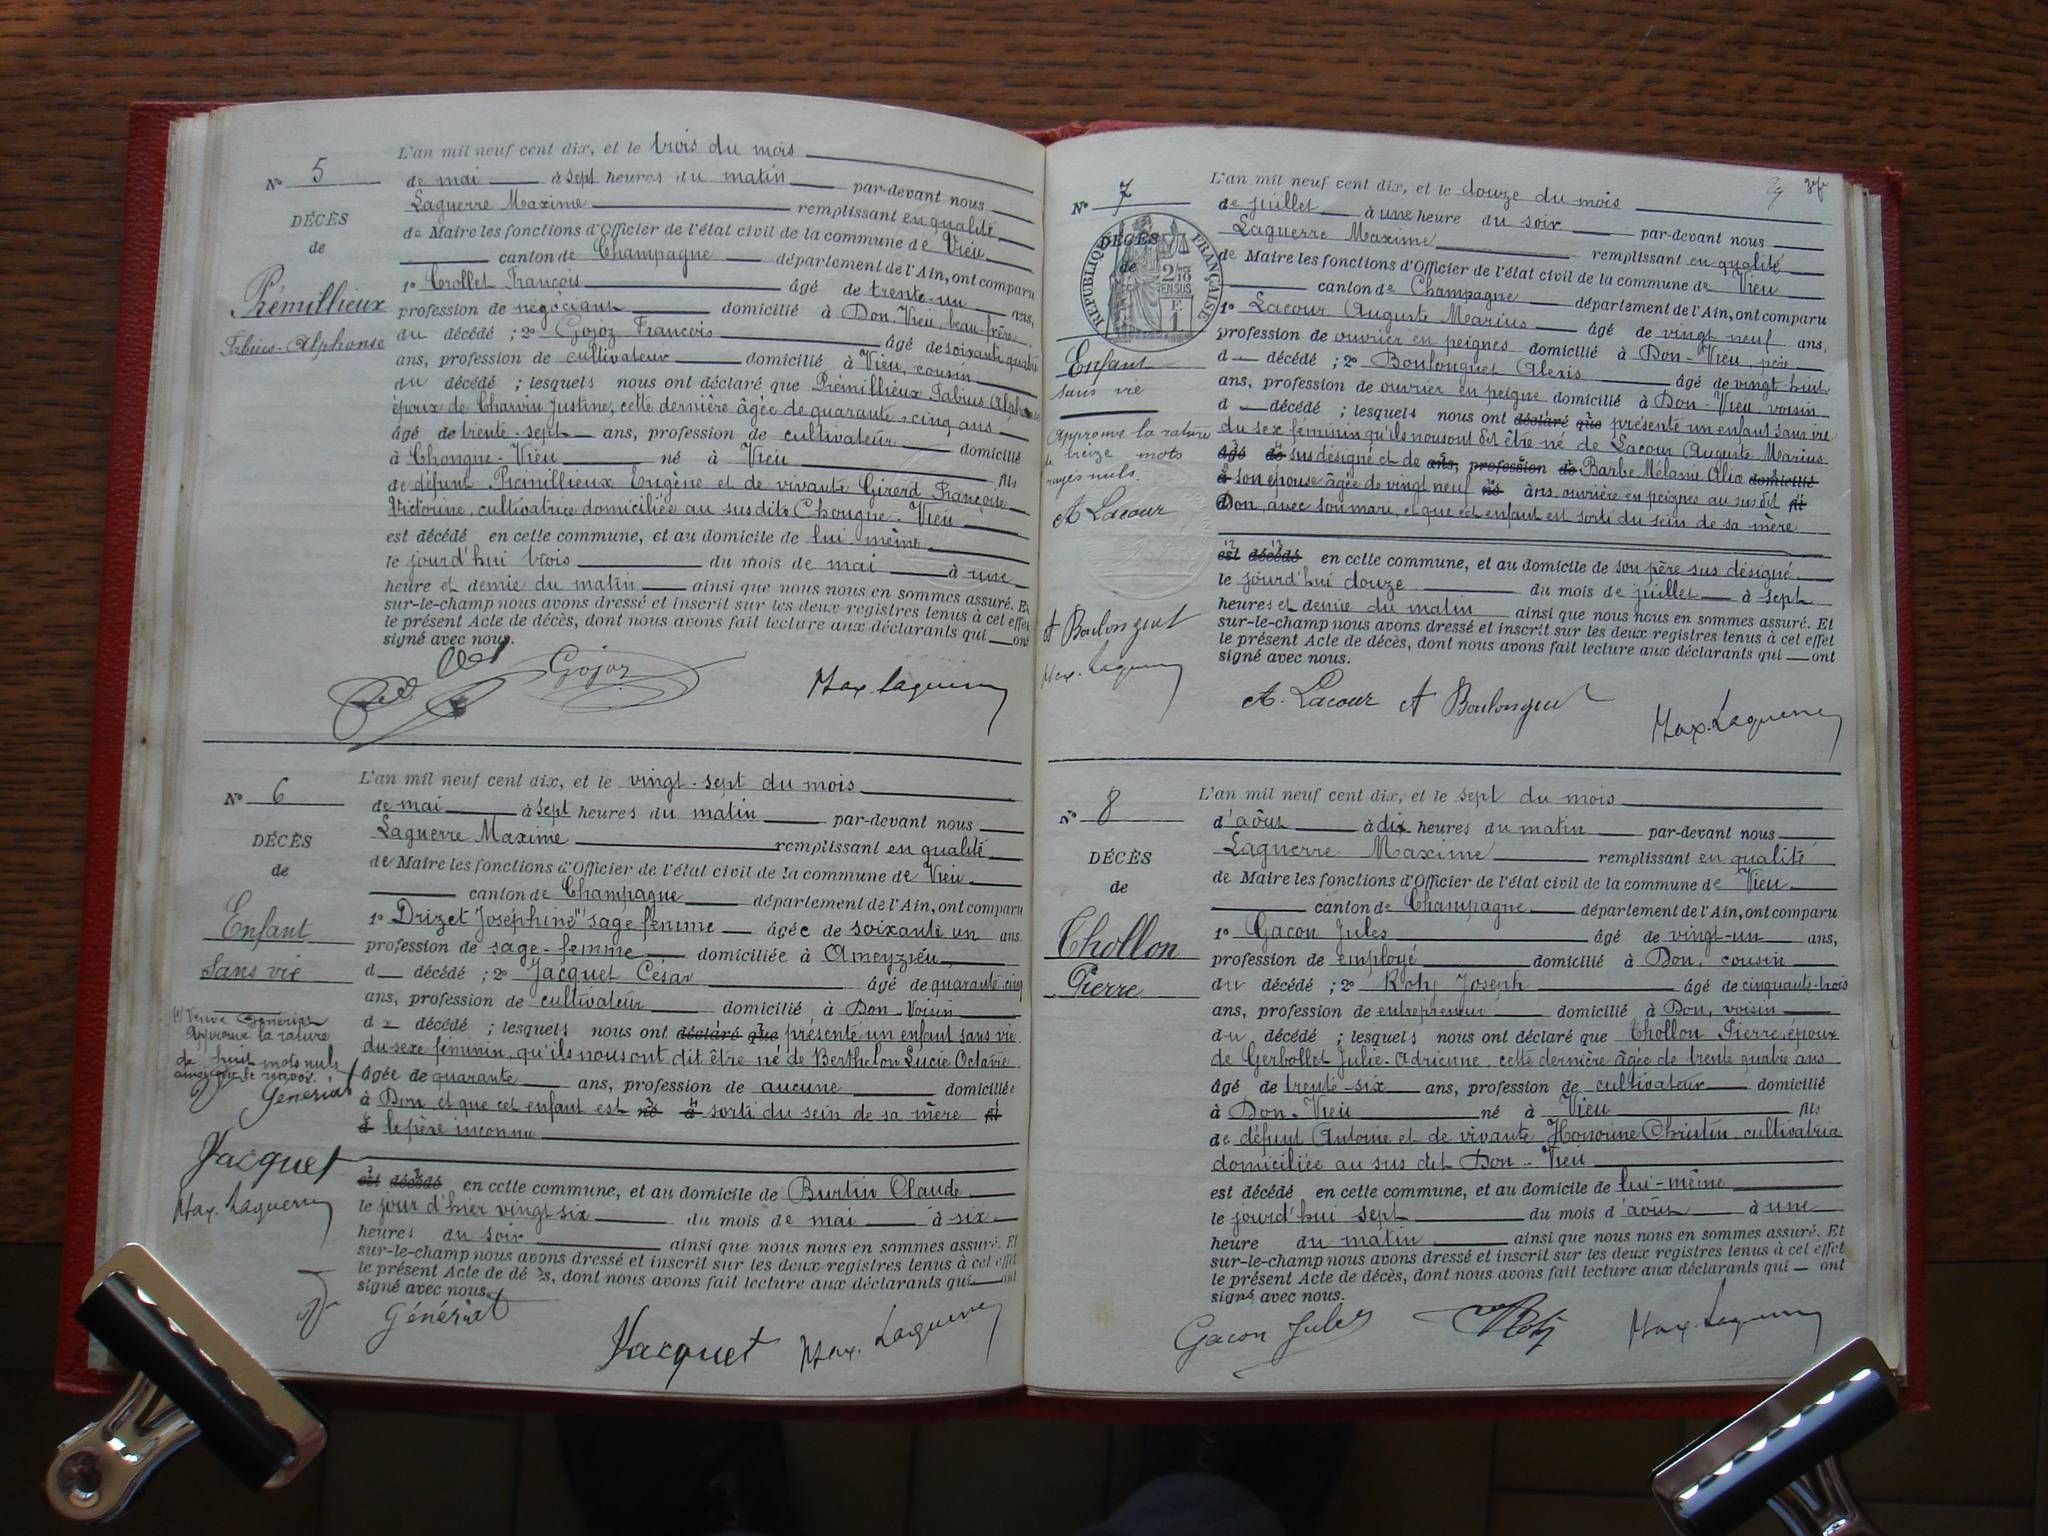 N° 5
DÉCÈS
de
Prémillieux
Fabius-Alphonse
L'an mil neuf cent dix, et le trois du mois
de mai à sept heures du matin par-devant nous
Laguerre Maxime remplissant en qualité
de Maire les fonctions d'Officier de l'état civil de la commune de Vieu
canton de Champagne département de l'Ain, ont comparu
1° Crollet François âgé de trente-un ans,
profession de négociant domicilié à Don-Vieu, beau-frère
du décédé ; 2° Gojoz François âgé de soixante quatre
ans, profession de cultivateur domicilié à Vieu, cousin
du décédé ; lesquels nous ont déclaré que Prémillieux Fabius Alphonse
époux de Charvin Justine, cette dernière âgée de quarante-cinq ans
âgé de trente-sept ans, profession de cultivateur domicilié
à Chongne-Vieu né à Vieu fils
de défunt Prémillieux Eugène et de vivante Girerd Françoise
Victorine, cultivatrice domiciliée au susdits Chongne-Vieu
est décédé en cette commune, et au domicile de lui même
le jourd'hui trois du mois de mai à une
heure et demie du matin ainsi que nous nous en sommes assuré. Et
sur-le-champ nous avons dressé et inscrit sur les deux registres tenus à cet effet
le présent Acte de décès, dont nous avons fait lecture aux déclarants qui ont
signé avec nous.
Gojoz Max. Laguerre
N° 6
DÉCÈS
de
Enfant
Sans vie
L'an mil neuf cent dix, et le vingt-sept du mois
de mai à sept heures du matin par-devant nous
Laguerre Maxime remplissant en qualité
de Maire les fonctions d'Officier de l'état civil de la commune de Vieu
canton de Champagne département de l'Ain, ont comparu
1° Drizet Joséphine sage femme âgée de soixante un ans
profession de sage-femme domiciliée à Ameyzieu,
d décédé ; 2° Jacquet César âgé de quarante-cinq
ans, profession de cultivateur domicilié à Don-Voisin
d décédé ; lesquels nous ont déclaré que présenté un enfant sans vie
du sexe féminin, qu'ils nous ont dit être né de Berthelon Lucie Octavie
âgée de quarante ans, profession de aucune domiciliée
à Don et que cet enfant est né à sorti du sein de sa mère fil
d le père inconnu
est décédé en cette commune, et au domicile de Burtin Claude
le jour d'hier vingt six du mois de mai à six
heures du soir ainsi que nous nous en sommes assuré. Et
sur-le-champ nous avons dressé et inscrit sur les deux registres tenus à cet effet
le présent Acte de décès, dont nous avons fait lecture aux déclarants qui ont
signé avec nous.
Veuve Génériat
Approuvé la rature
de huit mots nuls
ainsi que le renvoi.
Génériat
Jacquet
Max. Laguerre
Génériat Jacquet Max. Laguerre
N° 7
DÉCÈS
de
RÉPUBLIQUE FRANÇAISE
2/10 EN SUS
Enfant
sans vie
Approuvé la rature
de treize mots
rayés nuls.
A Lacour
A Boulonguet
Max. Laguerre
L'an mil neuf cent dix, et le douze du mois
de juillet à une heure du soir par-devant nous
Laguerre Maxime remplissant en qualité
de Maire les fonctions d'Officier de l'état civil de la commune de Vieu
canton de Champagne département de l'Ain, ont comparu
1° Lacour Auguste Marius âgé de vingt neuf ans,
profession de ouvrier en peignes domicilié à Don-Vieu, père
d décédé ; 2° Boulonguet Alexis âgé de vingt-huit
ans, profession de ouvrier en peigne domicilié à Don-Vieu, voisin
d décédé ; lesquels nous ont déclaré que présenté un enfant sans vie
du sex féminin qu'ils nous ont dit être né de Lacour Auguste Marius
âgé de sus désigné et de ans, profession de Barbe Mélanie Alix domicilié
à son épouse âgée de vingt neuf né ans, ouvrière en peignes au susdit fil
Don, avec son mari, et que cet enfant est sorti du sein de sa mère
est décédé en cette commune, et au domicile de son père sus désigné
le jourd'hui douze du mois de juillet à sept
heures et demie du matin ainsi que nous nous en sommes assuré. Et
sur-le-champ nous avons dressé et inscrit sur les deux registres tenus à cet effet
le présent Acte de décès, dont nous avons fait lecture aux déclarants qui ont
signé avec nous.
A. Lacour A Boulonguet Max. Laguerre
N° 8
DÉCÈS
de
Chollon
Pierre
L'an mil neuf cent dix, et le sept du mois
d'août à dix heures du matin par-devant nous
Laguerre Maxime remplissant en qualité
de Maire les fonctions d'Officier de l'état civil de la commune de Vieu
canton de Champagne département de l'Ain, ont comparu
1° Gacon Jules âgé de vingt-un ans,
profession de employé domicilié à Don, cousin
du décédé ; 2° Roty Joseph âgé de cinquante-trois
ans, profession de entrepreneur domicilié à Don, voisin
du décédé ; lesquels nous ont déclaré que Chollon Pierre, époux
de Gerbollet Julie-Adrienne, cette dernière âgée de trente quatre ans
âgé de trente-six ans, profession de cultivateur domicilié
à Don-Vieu né à Vieu fils
de défunt Antoine et de vivante Honorine Christin, cultivatrice
domiciliée au sus dit Don-Vieu
est décédé en cette commune, et au domicile de lui-même
le jourd'hui sept du mois d'août à une
heure du matin ainsi que nous nous en sommes assuré. Et
sur-le-champ nous avons dressé et inscrit sur les deux registres tenus à cet effet
le présent Acte de décès, dont nous avons fait lecture aux déclarants qui ont
signé avec nous.
Gacon Jules Roty Max. Laguerre